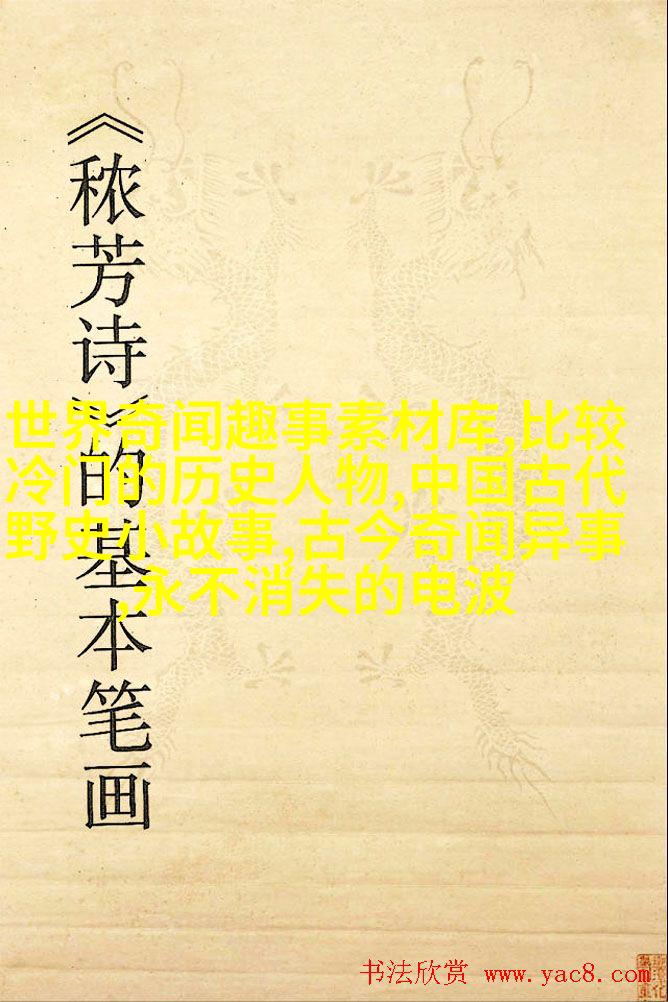 《秾芳诗》的基本笔画
世界奇闻趣事素材库,比较
冷门的历史人物,中国古代
野史小故事,古今奇闻异事
,永不消失的电波
书法欣赏 www.yac8.com